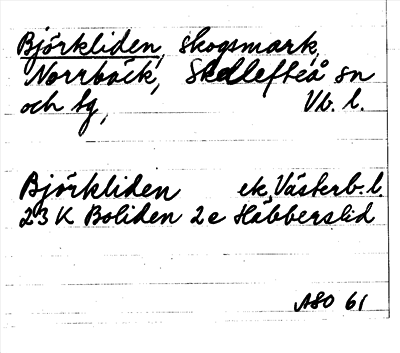 Björkliden, skogsmark,
Norrbäck, Skellefteå sn
och tg, Vb. l.
Björkliden ek, Västerb. l.
23 K Boliden 2 e Häbberslid
ASO 61